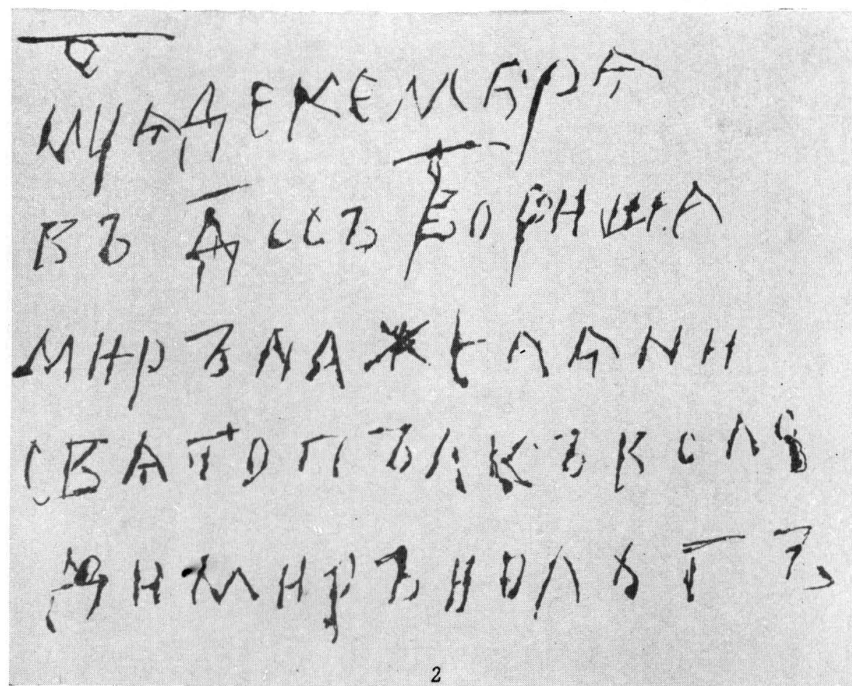 МЦѦ ДЕКЕМБРѦ
ВЪ Д҃ СЪТВОРИША
МИРЪ НА ЖЕЛѦНИ
СВѦТОПЪЛКЪ ВОЛО
ДИМИРЪ И ОЛЬГЪ
2